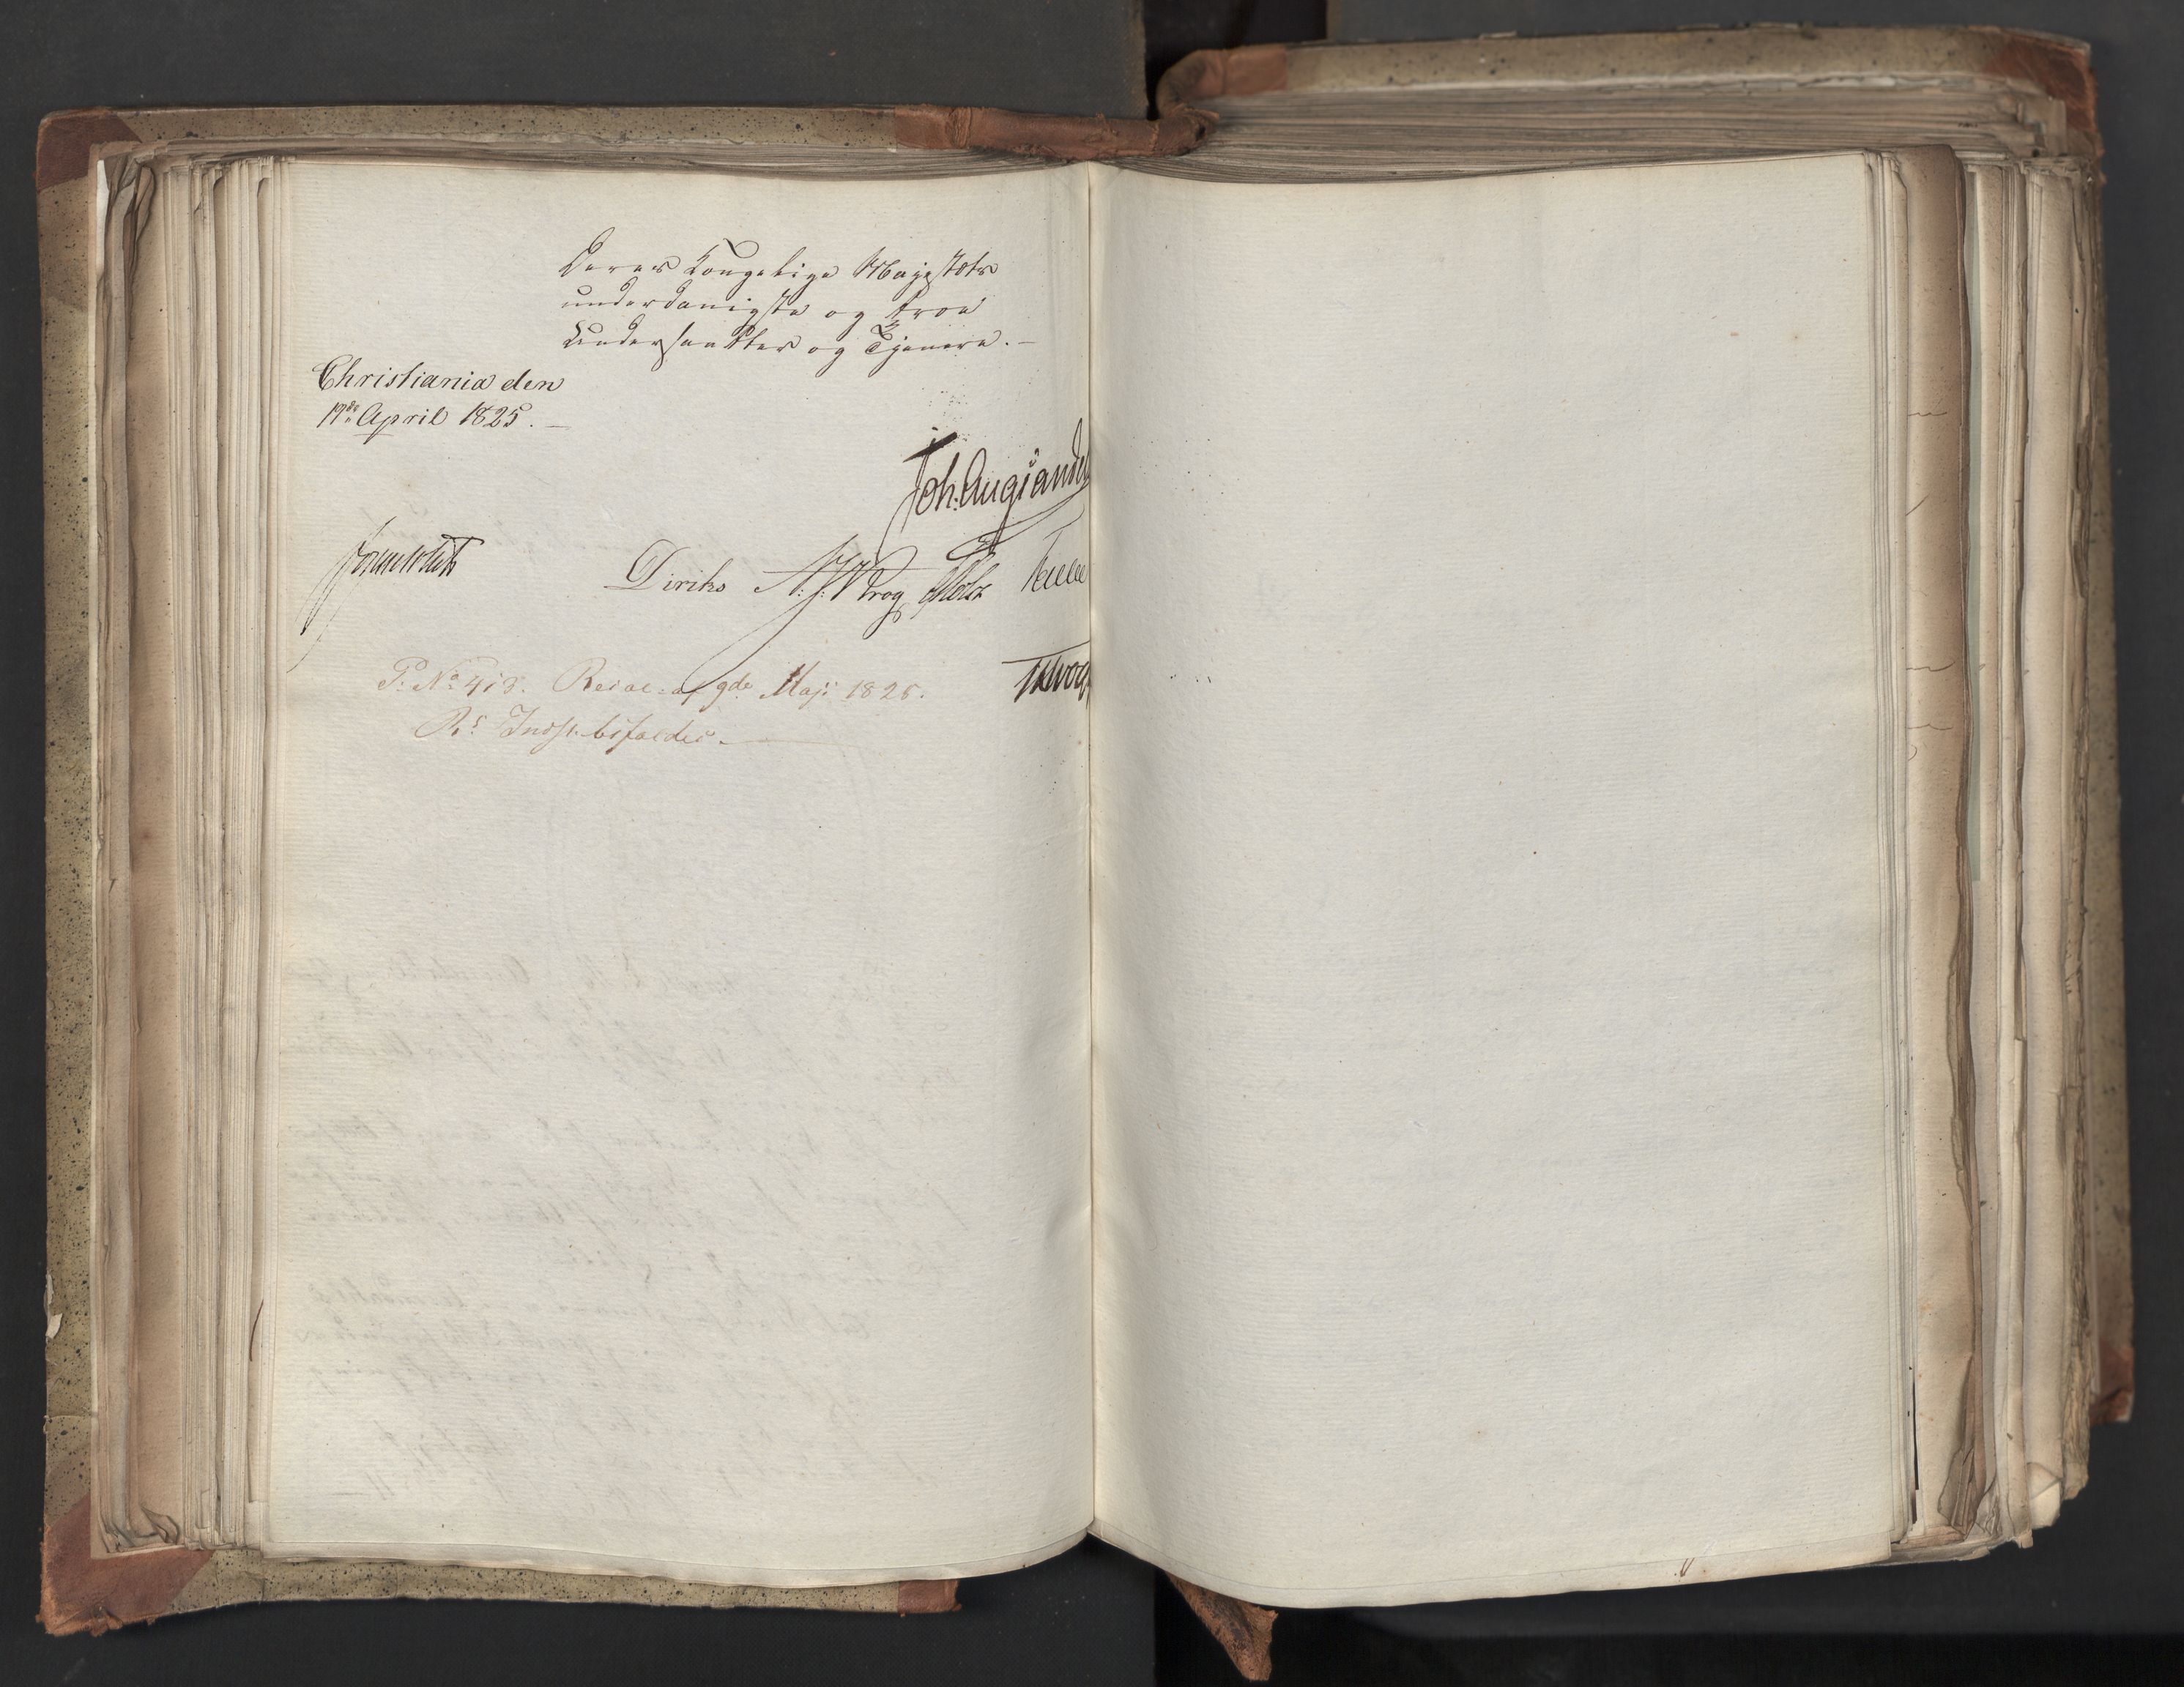 Deres Kongelige Majestæts
underdanigste og troe
Undersaatter og Tjenere.
Christiania den
19de April 1825.
Joh. Aug: Sandel
Sommerhielm
Diriks A. J. Krog Holst
P: No 418. Resol: af 9de Maji 1825.
Rs Indst. bifaldes.